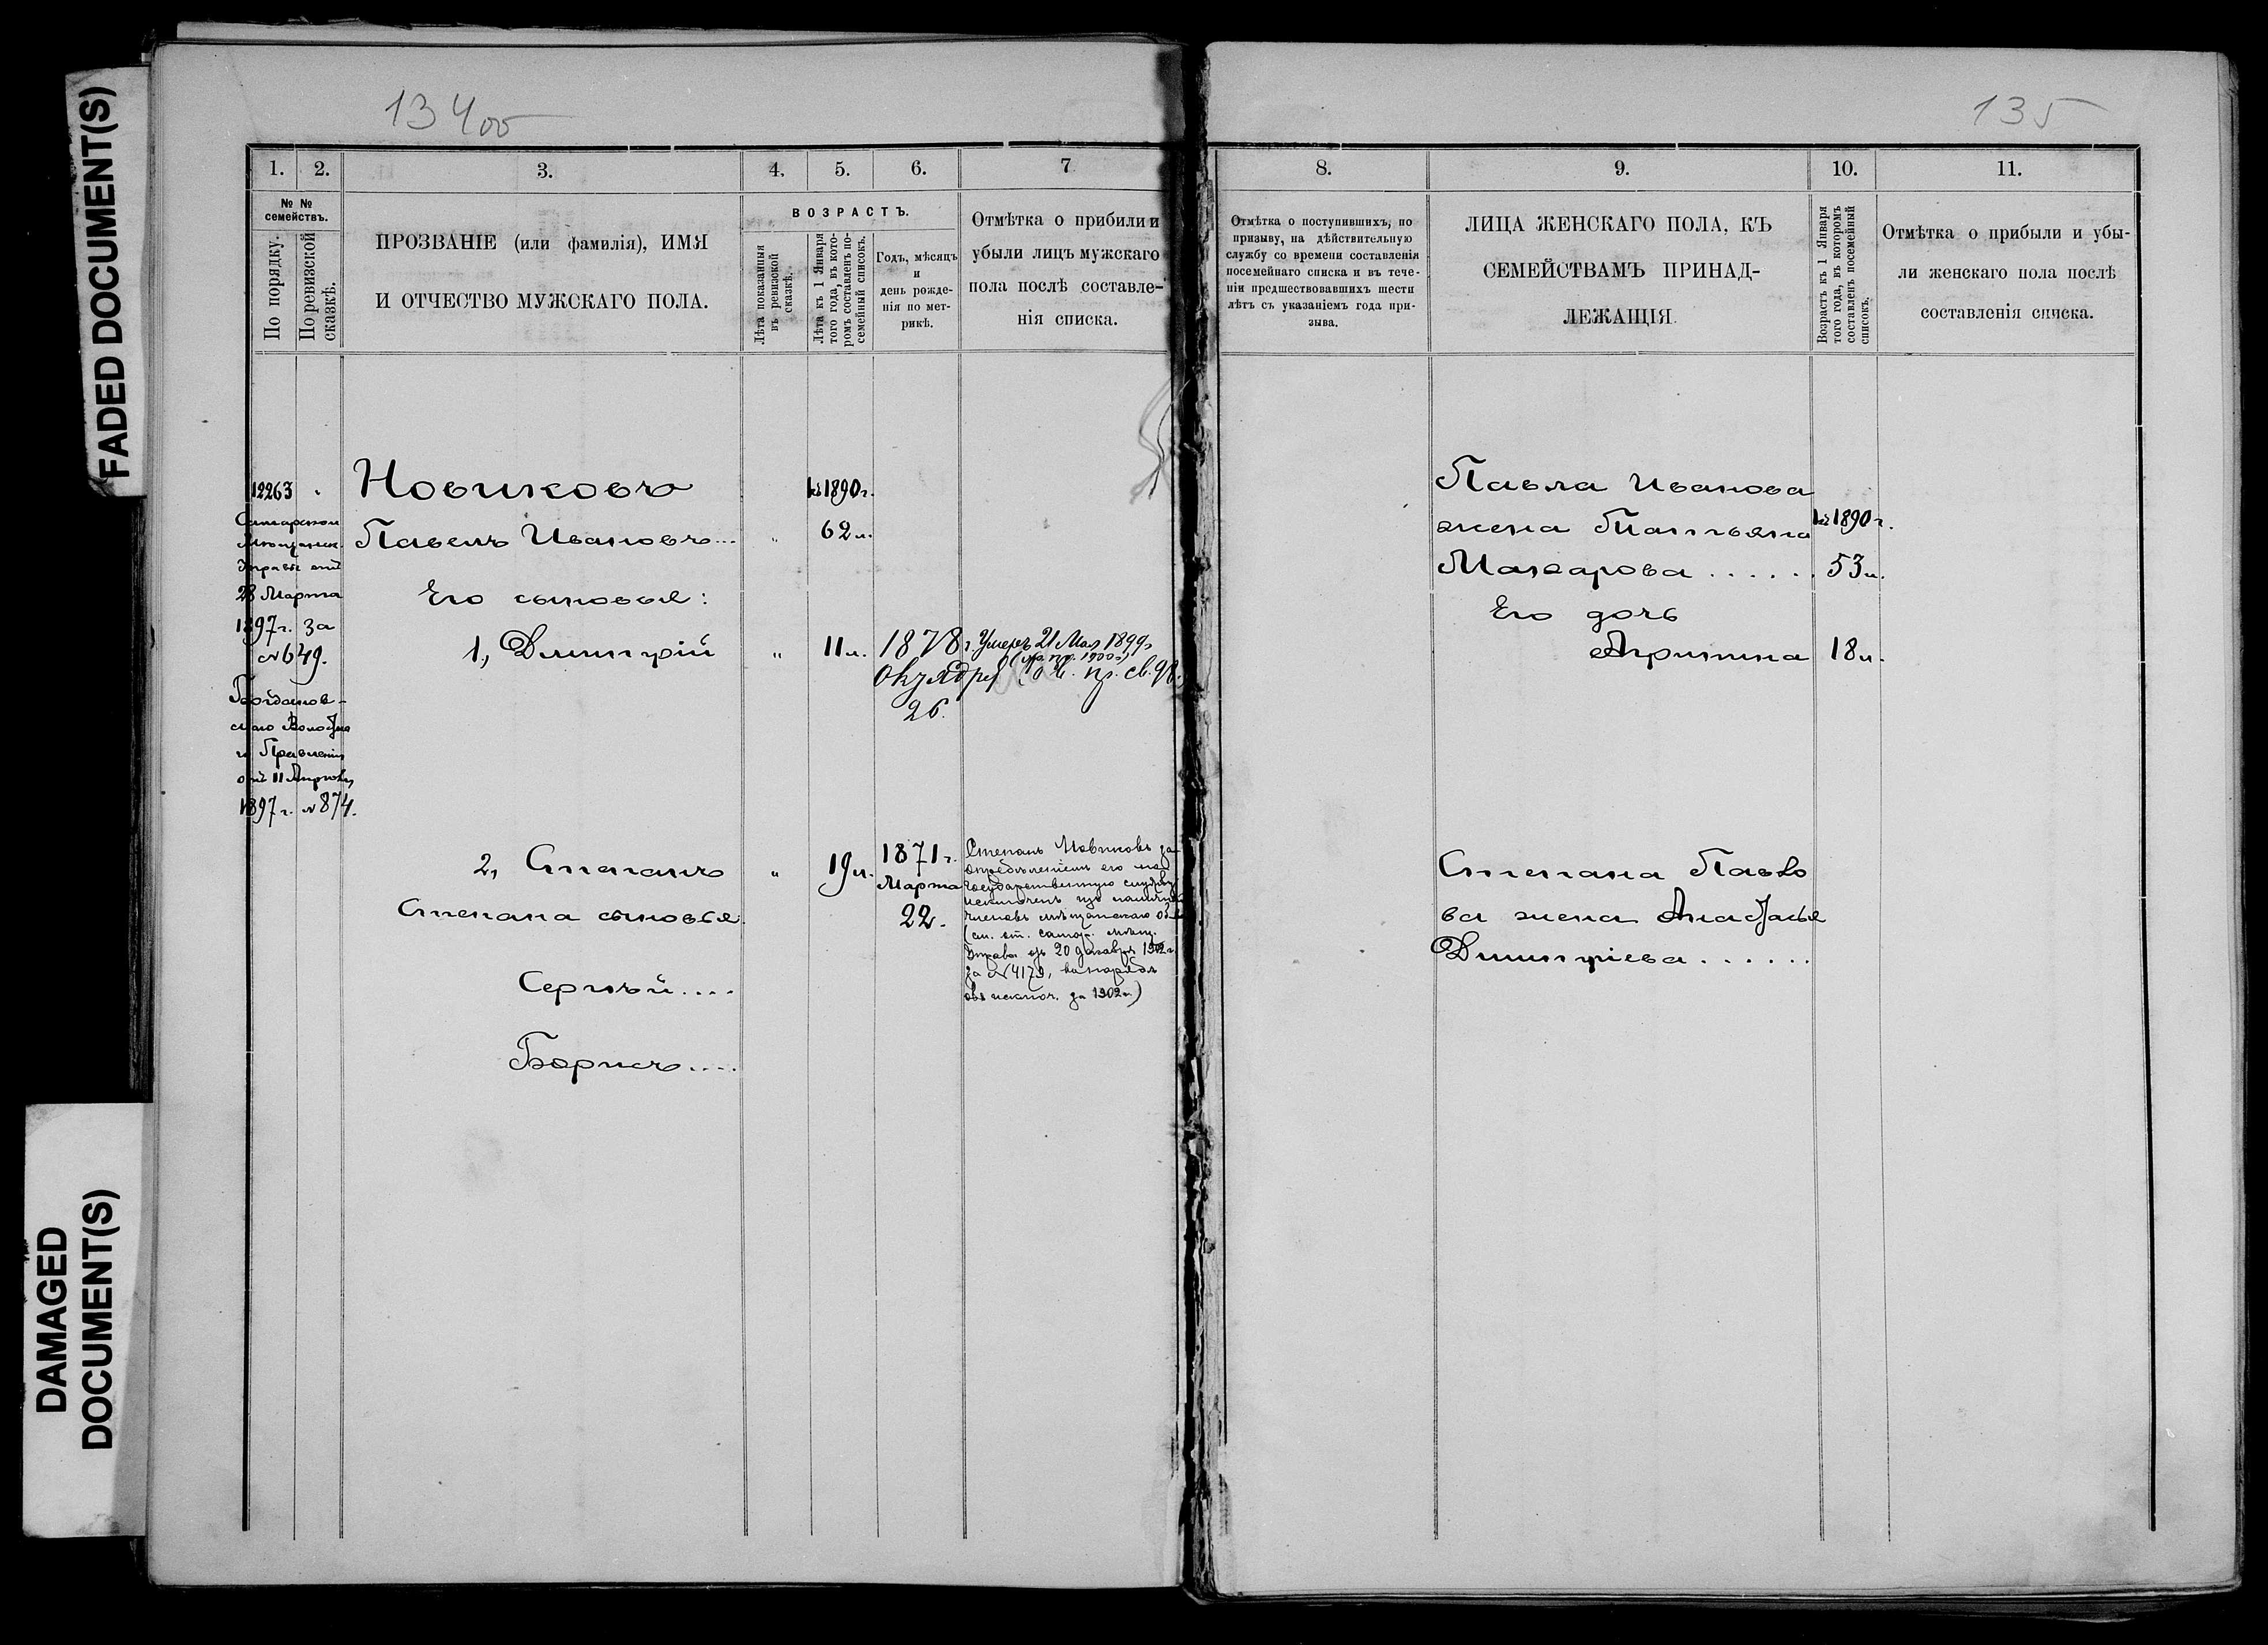 FADED DOCUMENT(S)
DAMAGED
DOCUMENT(S)
134об
1. 2. 3. 4. 5. 6. 7
№ №
семействъ.
По порядку.
По ревизской
сказкѣ.
ПРОЗВАНІЕ (или фамилія), ИМЯ
И ОТЧЕСТВО МУЖСКАГО ПОЛА.
ВОЗРАСТЪ.
Лѣта показанныя
въ ревизской
сказкѣ.
Лѣта къ 1 Января
того года, въ кото-
ромъ составленъ по-
семейный списокъ.
Годъ, мѣсяцъ
и
день рожде-
нія по мет-
рикѣ.
Отмѣтка о прибыли и
убыли лицъ мужскаго
пола послѣ составле-
нія списка.
12263 "
Самарской
Мѣщанск.
Управы отъ
28 Марта
1897 г. за
№649.
Богданов-
скаго Волостна
го Правленія
отъ 11 Апрѣля
1897 г. №874.
Новиковъ къ 1890 г.
Павелъ Ивановъ... " 62 л.
Его сыновья:
1, Дмитрій " 11 л. 1878 г.
Октября
26.
Умеръ 21 Мая 1899 г.
2, Степанъ " 19 л. 1871 г.
Марта
22.
Степана сыновья
Сергѣй....
Борисъ....
Степанъ Новиковъ за
опредѣленіемъ его на
государственную службу
исключенъ изъ
членовъ мѣщанскаго об
(см. от. Самар. мѣщ.
Управы отъ 20 декабря 1902 г.
за №4179, въ нарядѣ
объ исключ. за 1902 г.)
135
8. 9. 10. 11.
Отмѣтка о поступившихъ, по
призыву, на дѣйствительную
службу со времени составленія
посемейнаго списка и въ тече-
ніи предшествовавшихъ шести
лѣтъ съ указаніемъ года при-
зыва.
ЛИЦА ЖЕНСКАГО ПОЛА, КЪ
СЕМЕЙСТВАМЪ ПРИНАД-
ЛЕЖАЩІЯ.
Возрастъ къ 1 Января
того года, въ которомъ
составленъ посемейный
списокъ.
Отмѣтка о прибыли и убы-
ли женскаго пола послѣ
составленія списка.
Павла Иванова
жена Татьяна къ 1890 г.
Макарова...... 53 л.
Его дочь
Агрипина 18 л.
Степана Павло
ва жена Анастасья
Дмитріева......